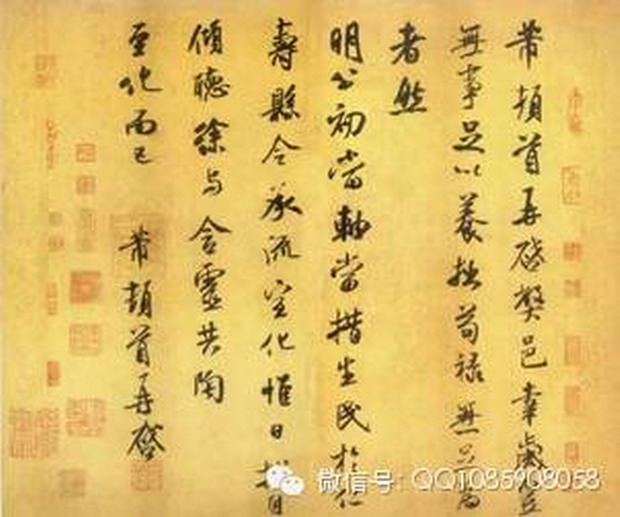 芾頓首再啓弊邑幸歲豐
無事足以養拙苟祿無足爲
者然
明公初當軸當措生民於仁
壽縣令承流宣化惟日拭目
傾聽徐与含靈共陶
至化而已 芾頓首再啓
微信号: QQ1085908058